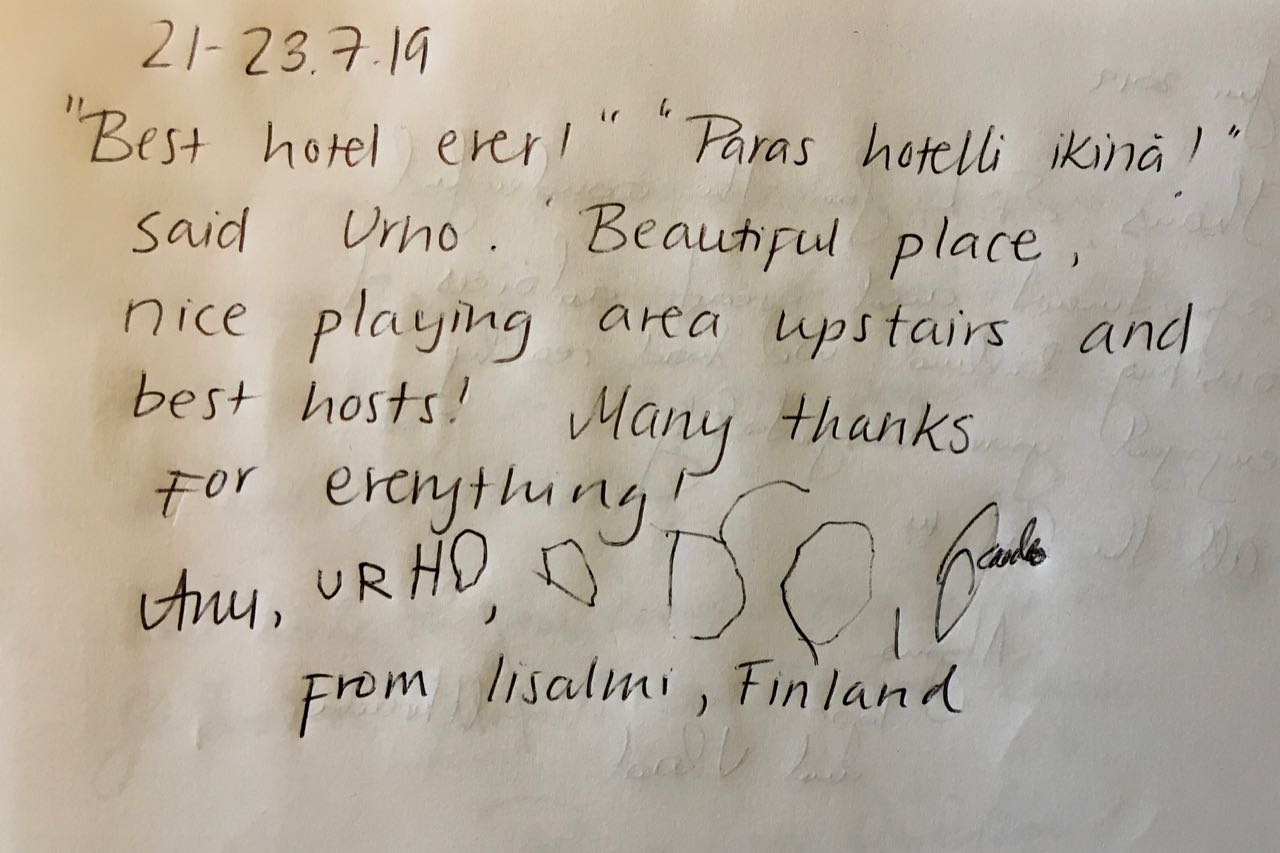 21-23.7.19
"Best hotel ever!" "Paras hotelli ikinä!"
said Urho. Beautiful place,
nice playing area upstairs and
best hosts! Many thanks
For everything!
Anu, URHO,
From Iisalmi, Finland